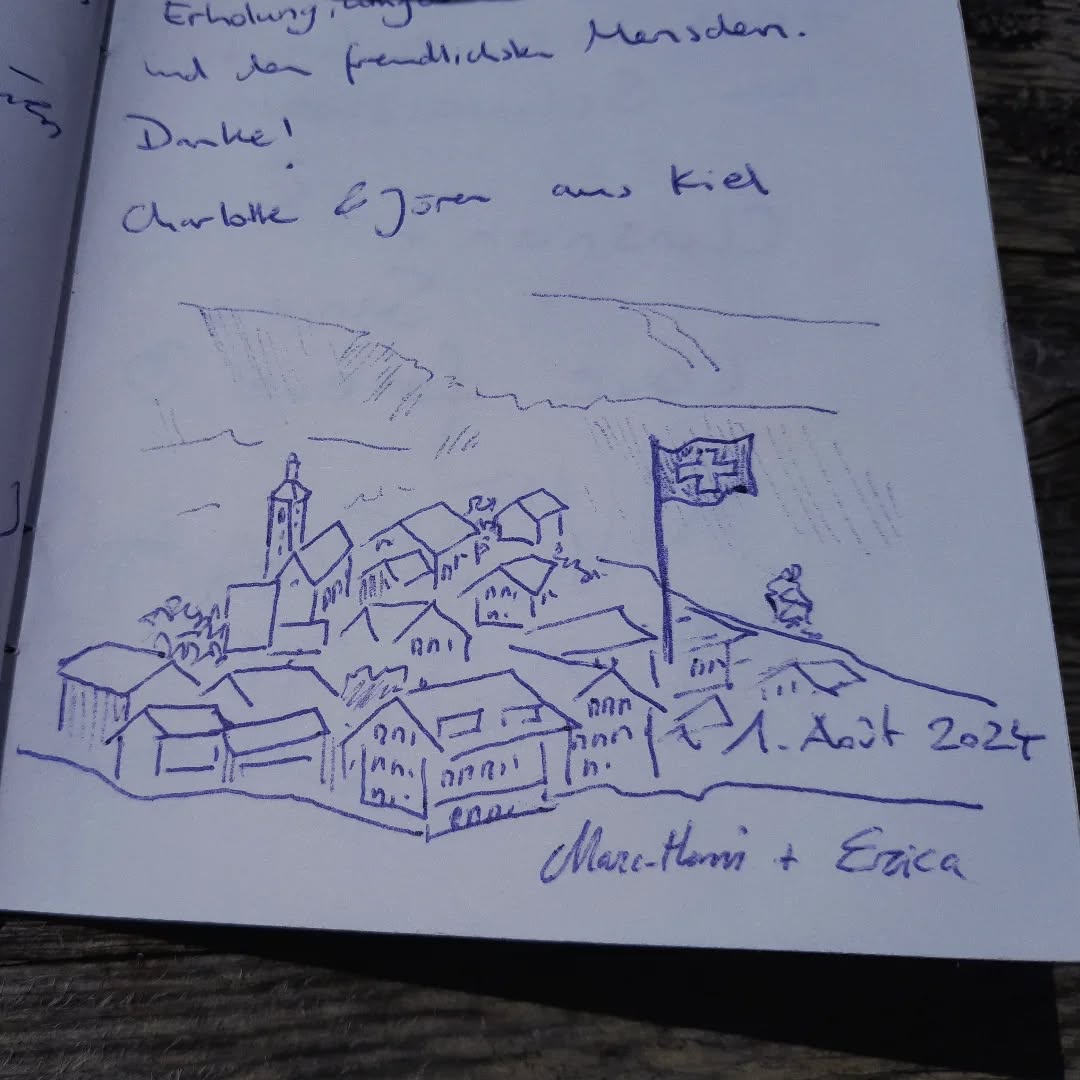 Erholung,
und den freundlichsten Menschen.
Danke!
Charlotte & Jören aus Kiel
1. Août 2024
Marc-Henri + Erica